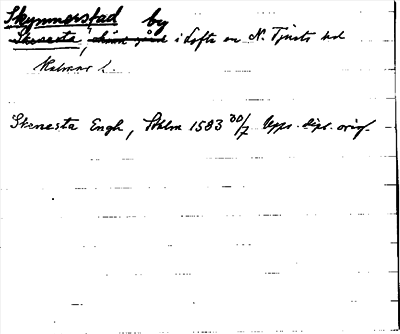 Skynnerstad by
Skenesta, i Lofta sn N. Tjusts hd
Kalmar l.
Skenesta Engh, Sthlm 1583 30/7 Upps. dipl. orig.